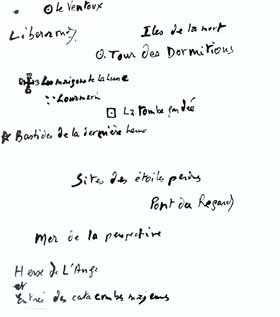 le Ventoux
Iles de la mort
O. Tour des Dormitions
Les maisons de la Lune
Lourmarin
La tombe
Bastides de la dernière
Sites des étoiles
Pont du Regard
Mer de la perspective
Herse de L'Ange
et
Entrée des catacombes